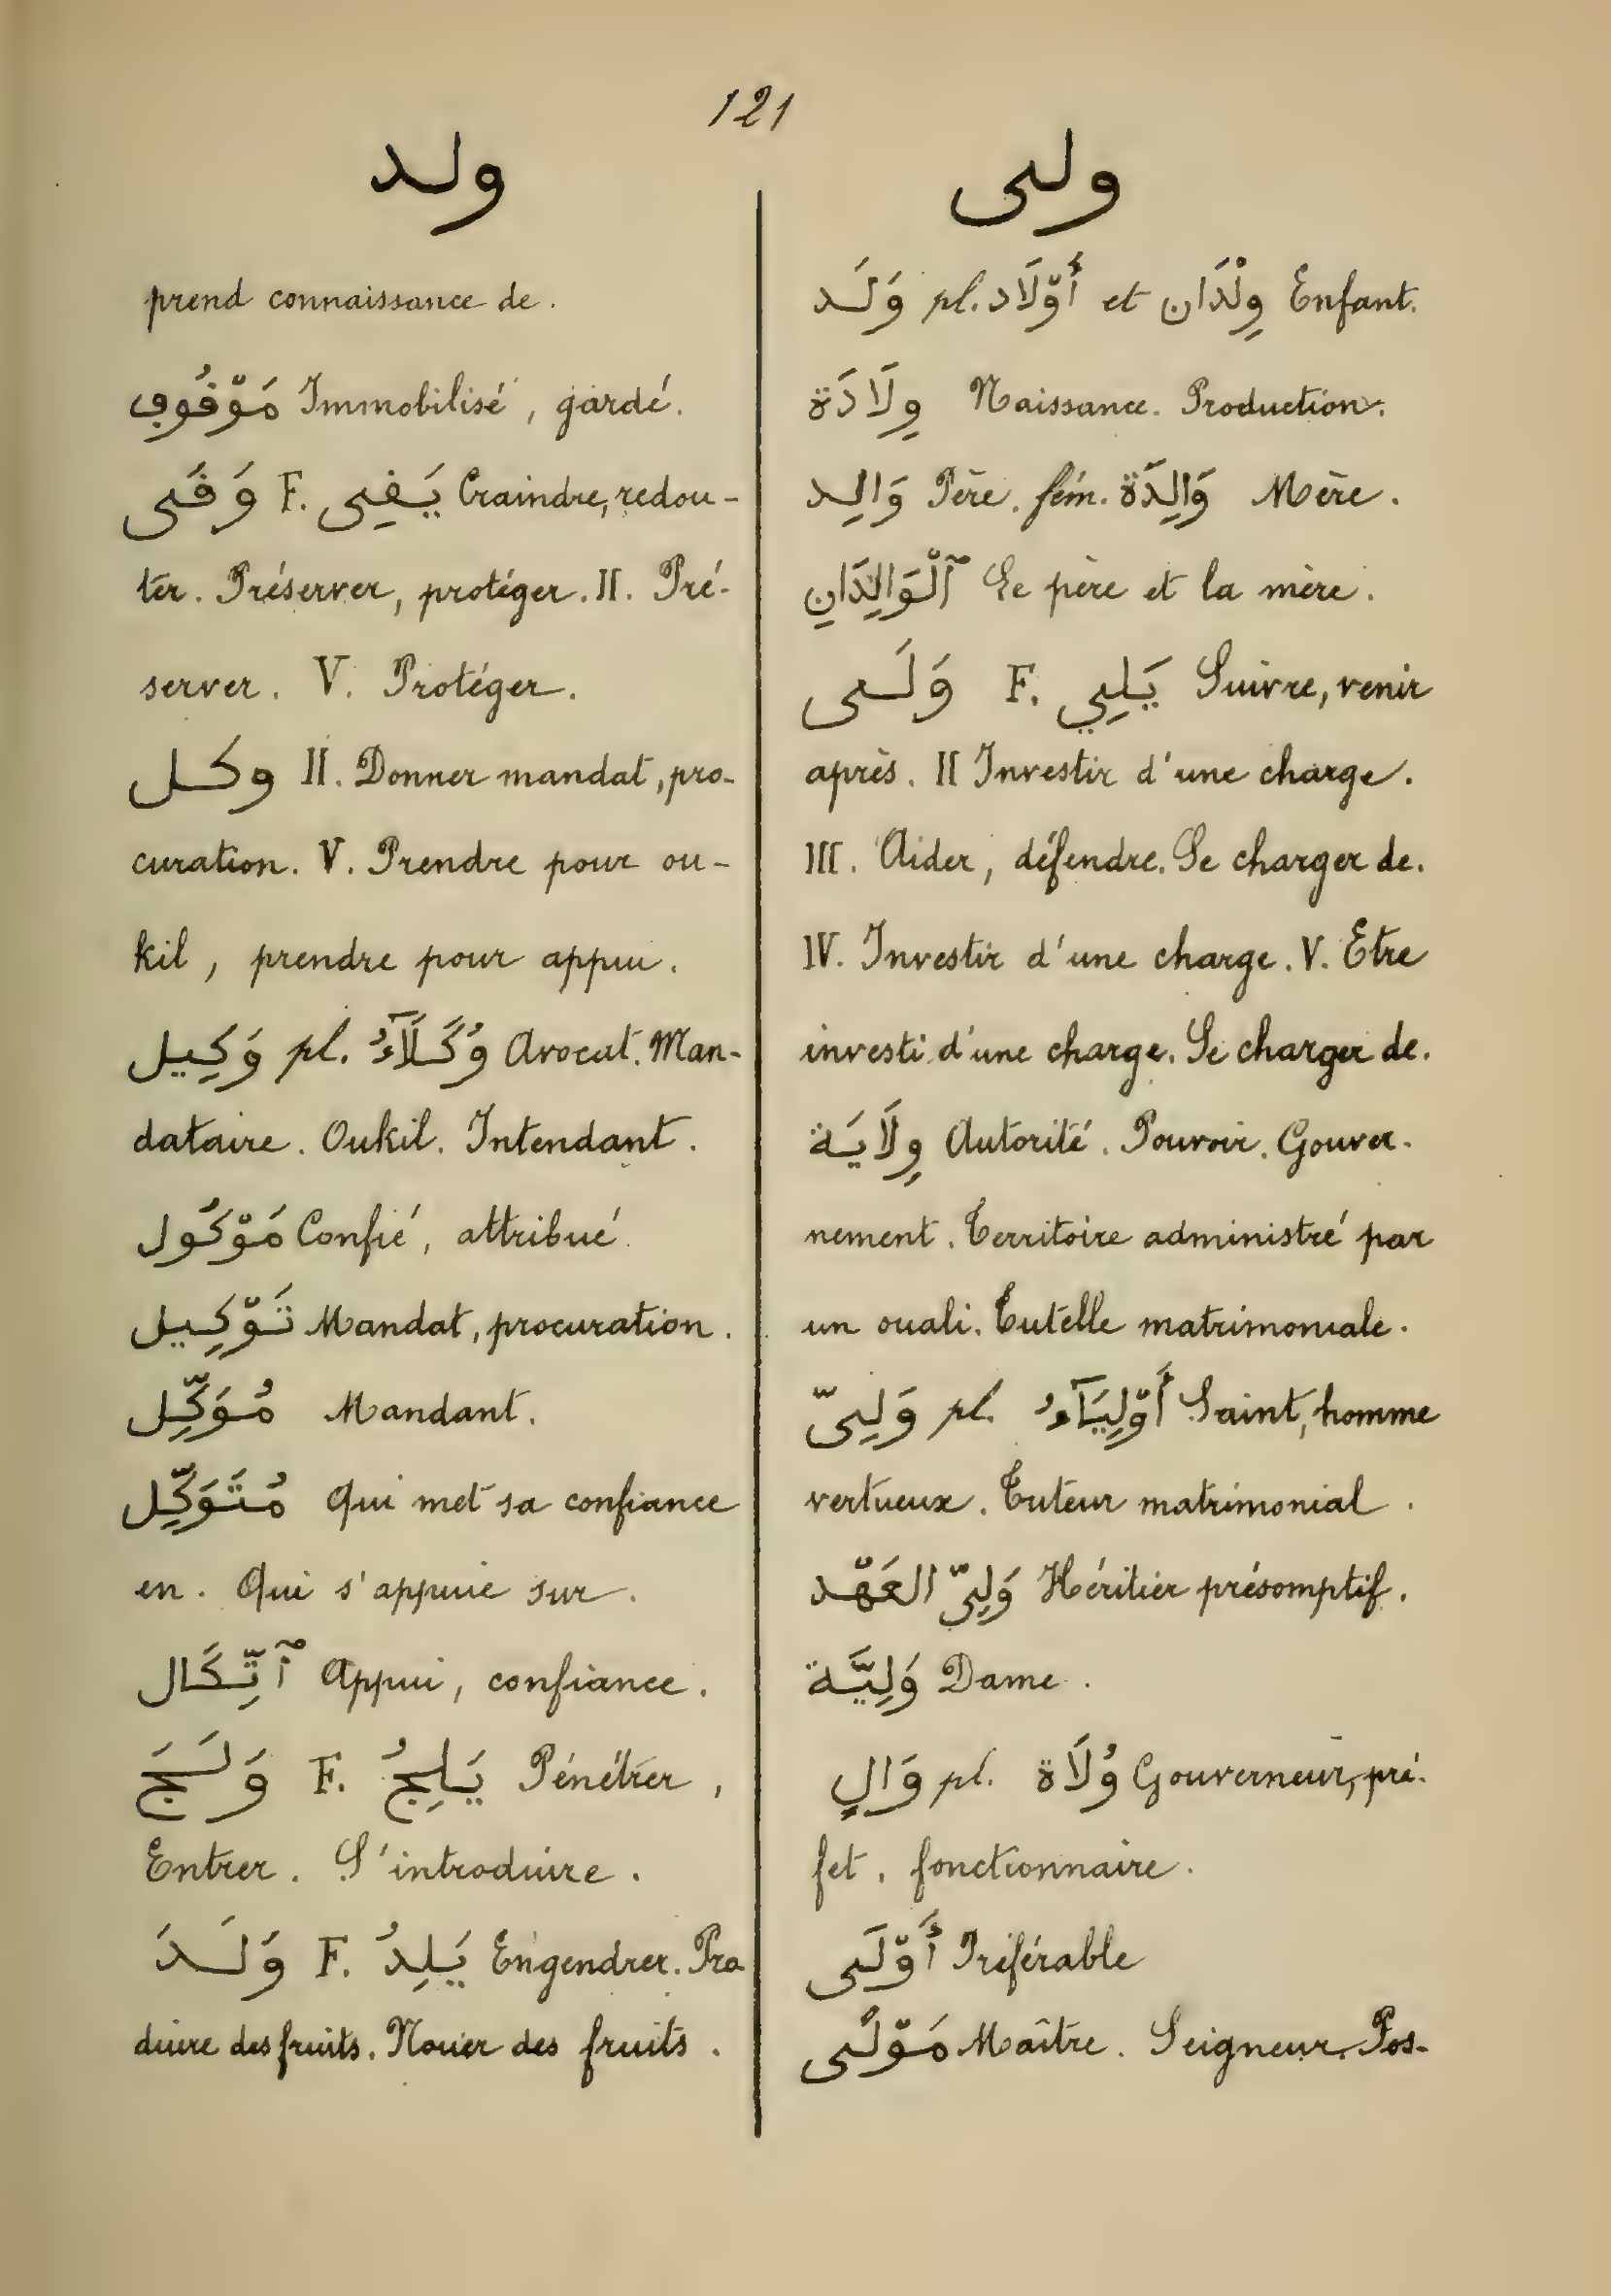 121
ولد
prend connaissance de.
مَوْفُوف Immobilisé, gardé.
وَفَى F. يَفِى Craindre, redou-
ter. Préserver, protéger. II. Pré-
server. V. Protéger.
وكل II. Donner mandat, pro-
curation. V. Prendre pour ou-
kil, prendre pour appui.
وَكِيل pl. وُكَلَآءُ Avocat. Man-
dataire. Oukil. Intendant.
مَوْكُول Confié, attribué.
تَوْكِيل Mandat, procuration.
مُوَكِّل Mandant.
مُتَوَكِّل Qui met sa confiance
en. Qui s'appuie sur.
ٱتِّكَال Appui, confiance.
وَلَجَ F. يَلِجُ Pénétrer,
Entrer. S'introduire.
وَلَدَ F. يَلِدُ Engendrer. Pro
duire des fruits. Nouer des fruits.
ولى
وَلَد pl. أَوْلَاد et وِلْدَان Enfant.
وِلَادَة Naissance. Production.
وَالِد Père. fém. وَالِدَة Mère.
ٱلْوَالِدَانِ Le père et la mère.
وَلَى F. يَلِي Suivre, venir
après. II Investir d'une charge.
III. Aider, défendre. Se charger de.
IV. Investir d'une charge. V. Etre
investi d'une charge. Se charger de.
وِلَايَة Autorité. Pouvoir. Gouver-
nement. Territoire administré par
un ouali. Tutelle matrimoniale.
وَلِىّ pl. أَوْلِيَآءُ Saint, homme
vertueux. Tuteur matrimonial.
وَلِىّ العَهْد Héritier présomptif.
وَلِيَّة Dame.
وَالٍ pl. وُلَاة Gouverneur, pré-
fet, fonctionnaire.
أَوْلَى Préférable
مَوْلًى Maître. Seigneur. Pos-